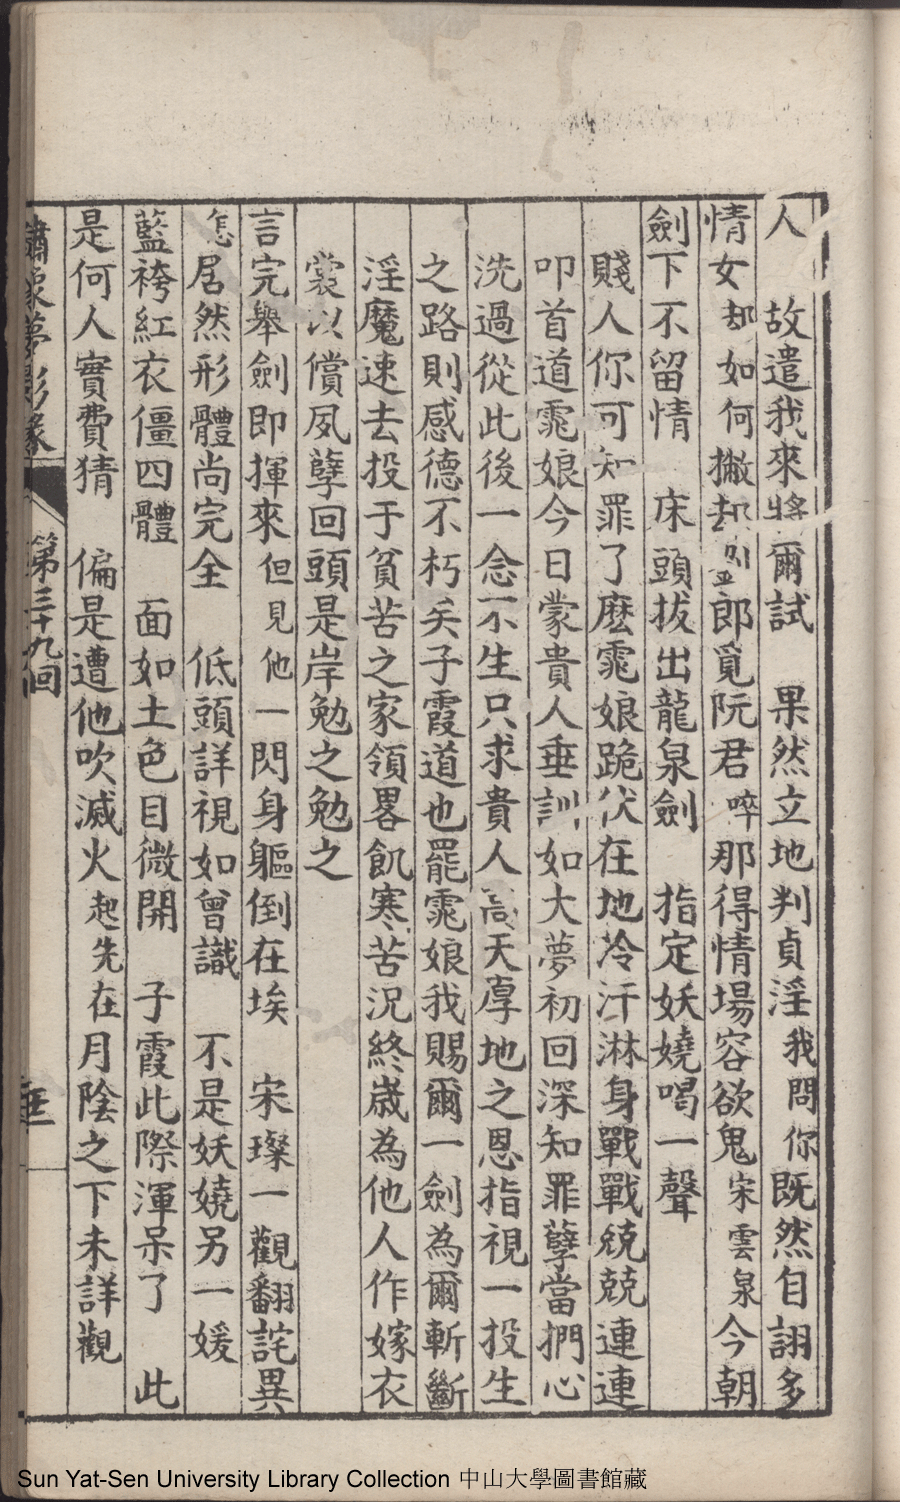 人　故遣我來將爾試　果然立地判貞淫我問你既然自詡多
情女却如何撇却郎覓阮君啐那得情場容欲鬼宋雲泉今朝
劍下不留情　床頭拔出龍泉劍　指定妖嬈喝一聲
賤人你可知罪了麽霓娘跪伏在地冷汗淋身戰戰兢兢連連
叩首道霓娘今日蒙貴人垂訓如大夢初回深知罪孽當捫心
洗過從此後一念不生只求貴人高天厚地之恩指視一投生
之路則感德不朽矣子霞道也罷霓娘我賜爾一劍為爾斬斷
淫魔速去投于貧苦之家領畧飢寒苦況終歲為他人作嫁衣
裳以償夙孽回頭是岸勉之勉之
言完舉劍即揮來但見他一閃身軀倒在埃　宋璨一觀翻詫異
怎居然形體尚完全　低頭詳視如曾識　不是妖嬈另一媛
藍袴紅衣僵四體　面如土色目微開　子霞此際渾呆了　此
是何人實費猜　偏是遭他吹滅火起先在月陰之下未詳觀
夢影緣　第三十九回
Sun Yat-Sen University Library Collection 中山大學圖書館藏